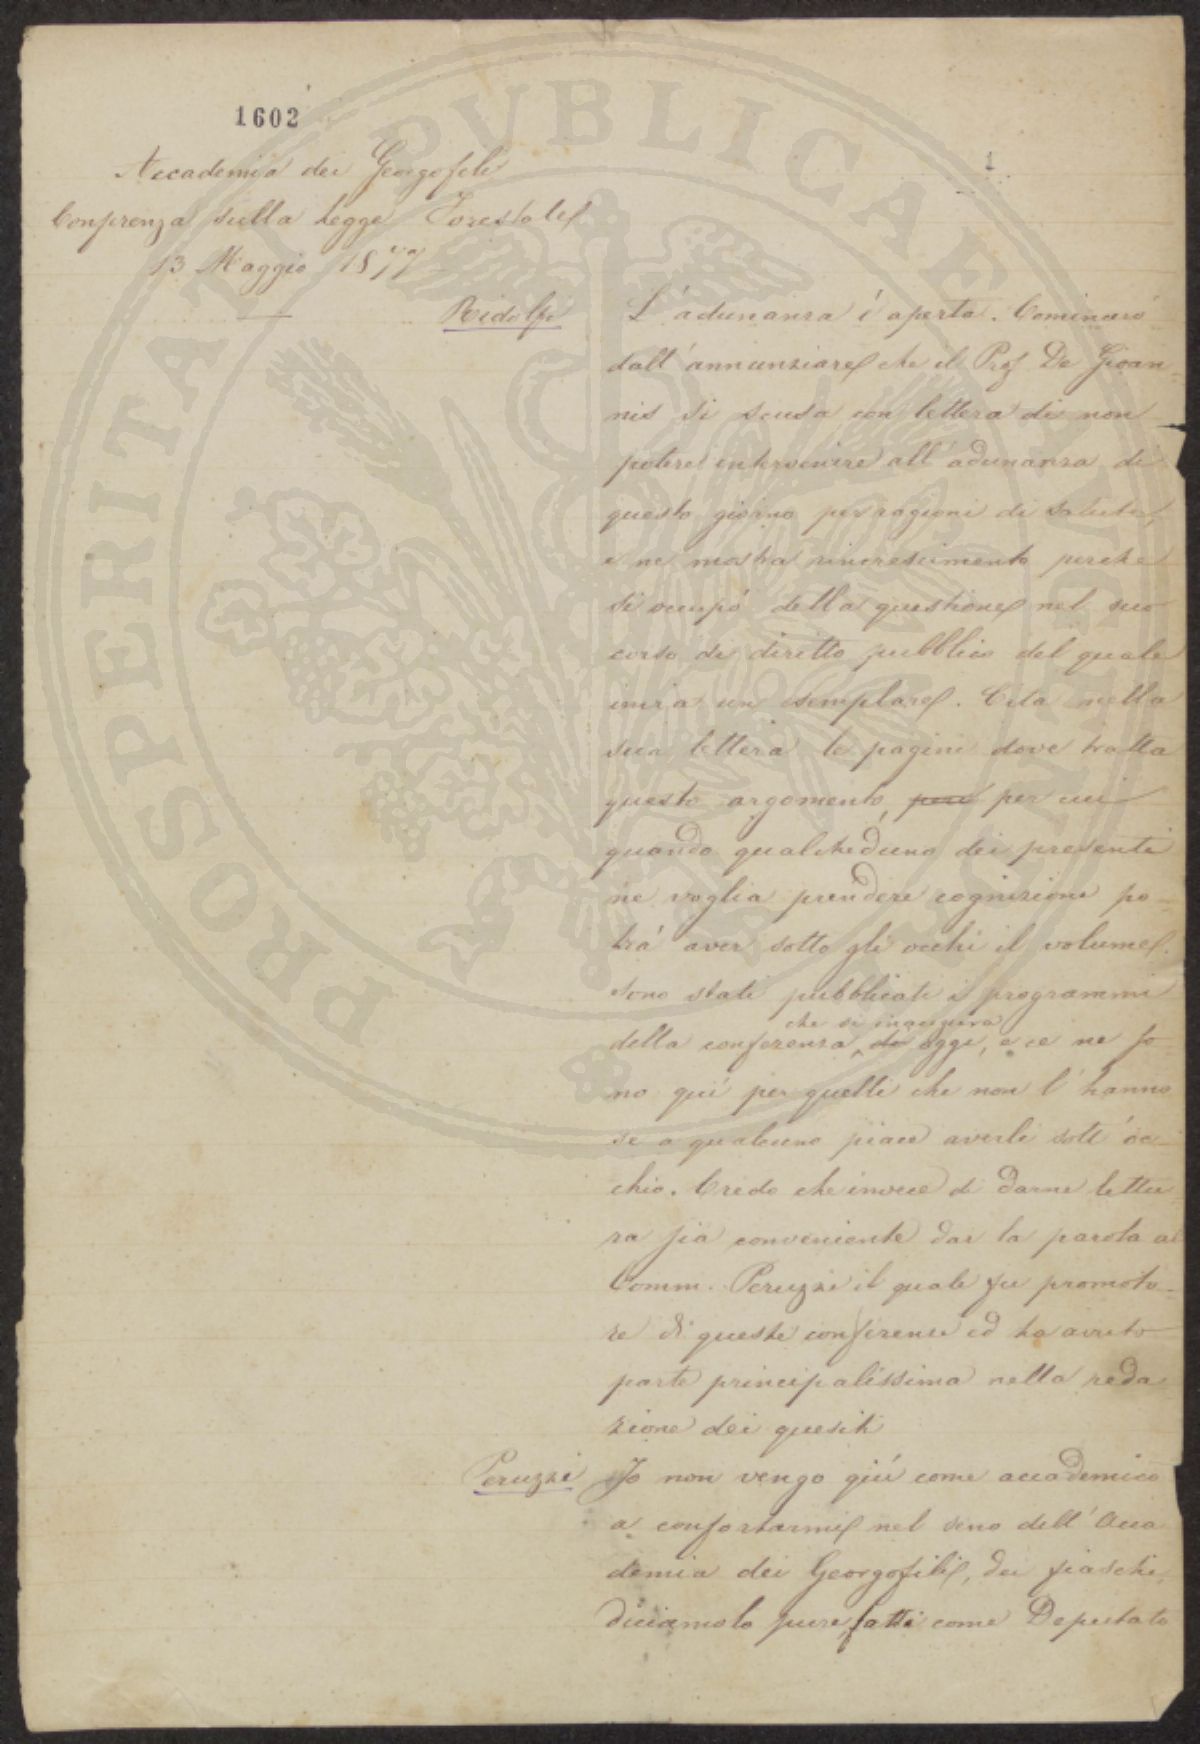 1602
1
Accademia dei Georgofili
Conferenza sulla Legge Forestale
13 Maggio 1877
Ridolfi
L'adunanza é aperta. Cominceró
dall'annunziare che il Prof De Gioan-
nis si scusa con lettera di non
potere intervenire all'adunanza di
questo giorno per ragioni di salute,
e ne mostra rincrescimento perche
si occupó della questione nel suo
corso di diritto pubblico del quale
invia un esemplare. Cita nella
sua lettera le pagine dove tratta
questo argomento, per cui
quando qualcheduno dei presenti
ne voglia prendere cognizione po-
trá aver sotto gli occhi il volume.
Sono stati pubblicati i programmi
che si inaugura
della conferenza di oggi, e ce ne so-
no quí per quelli che non l'hanno
se a qualcuno piace averli sott'oc-
chio. Credo che invece di darne lettu-
ra sia conveniente dar la parola al
Comm. Peruzzi il quale fu promoto-
re di queste conferenze ed ha avuto
parte principalissima nella reda
zione dei quesiti
Peruzzi
Io non vengo quí come accademico
a confortarmi nel seno dell'Acca
demia dei Georgofili, dei fiaschi,
diciamolo pure, fatti come Deputato
PROSPERITATI PUBLICAE AUGENDAE